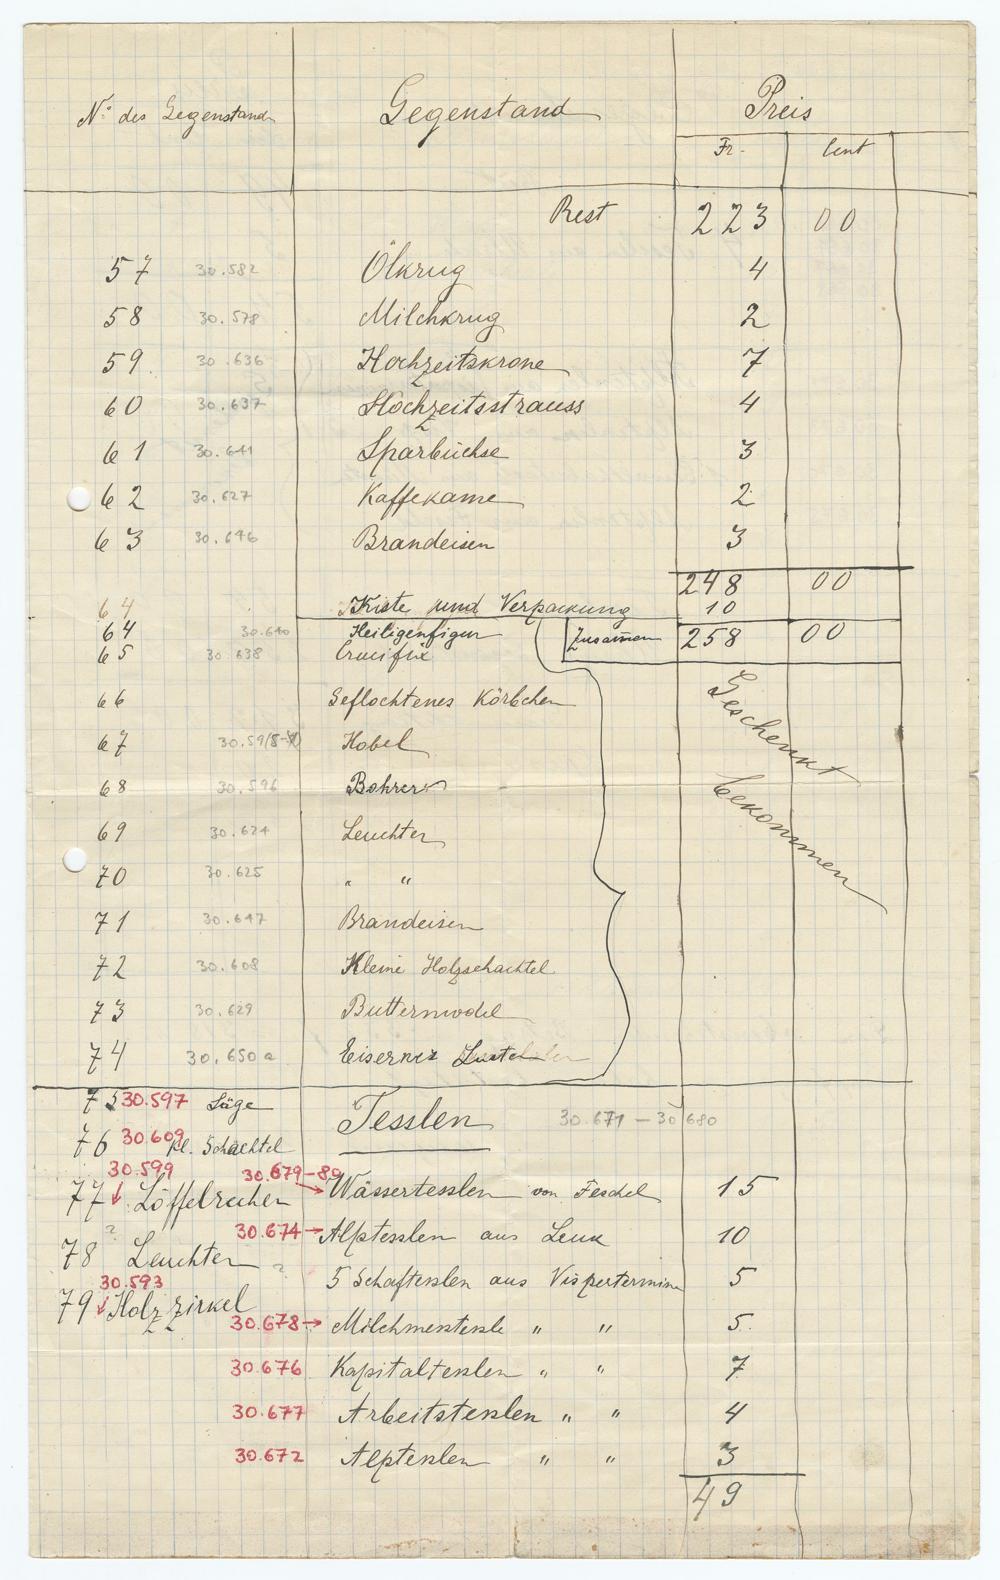 No. des Gegenstands Gegenstand Preis
Fr. Cent
Rest 223 00
57 30.582 Ölkrug 4
58 30.578 Milchkrug 2
59. 30.636 Hochzeitskrone 7
60 30.637 Hochzeitsstrauss 4
61 30.641 Sparbüchse 3
62 30.627 Kaffekanne 2
63 30.646 Brandeisen 3
248 00
64 Kiste und Verpackung 10
64 30.640 Heiligenfigur Zusammen 258 00
65 30.638 Crucifix
66 Geflochtenes Körbchen
Geschenkt
67 Hobel
68 30.596 Bohrer
bekommen
69 30.624 Leuchter
70 30.625 " "
71 30.647 Brandeisen
72 30.608 Kleine Holzschachtel
73 30.629 Buttermodel
74 30.650a Eiserner
75 30.597 Säge Tesslen 30.671 - 30.680
76 30.609 kl. Schachtel
30.599 30.679-80
77 ↓ Löffelrechen → Wässertesslen von Feschel 15
? 30.674 → Alptesslen aus Leuk 10
78 Leuchter ?
5 Schaftesslen aus Vispertermine 5
30.593
79 ↓ Holzzirkel
30.678 → Milchmesstessle " " 5.
30.676 Kapitaltesslen " " 7
30.677 Arbeitstesslen " " 4
30.672 Alptesslen " " 3
49